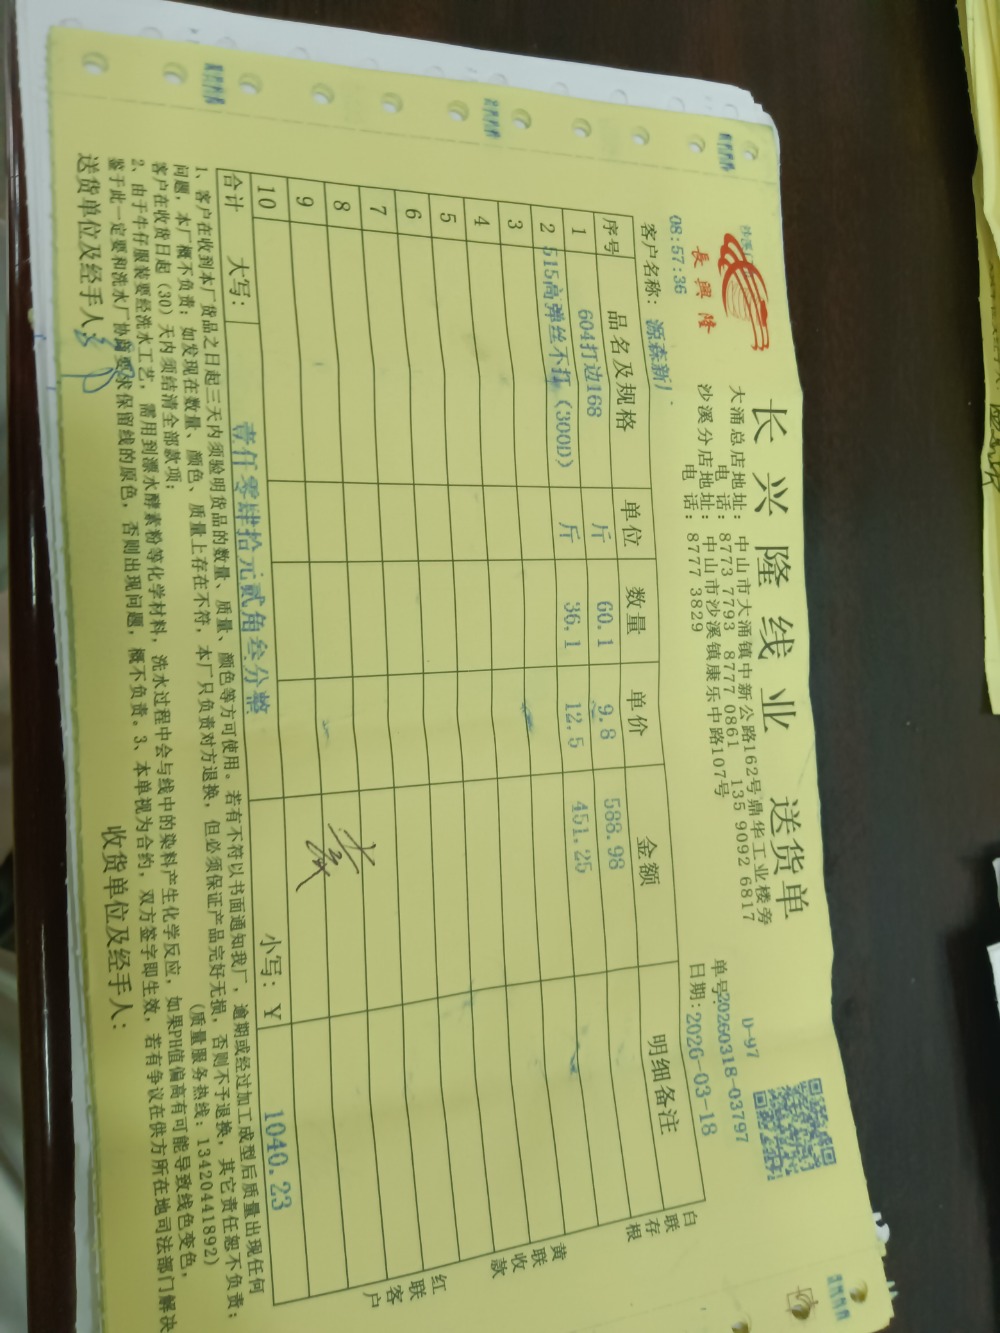 長興隆
长兴隆线业 送货单
大涌总店地址：中山市大涌镇中新公路162号鼎华工业楼旁
电话：8773 7793 8777 0861 135 9092 6817
沙溪分店地址：中山市沙溪镇康乐中路107号
电话：8777 3829
D-97
单号：20260318-03797
日期：2026-03-18
08:57:36
客户名称：源森新厂
序号 品名及规格 单位 数量 单价 金额 明细备注
1 604打边168 斤 60.1 9.8 588.98
2 515高弹丝不打（300D） 斤 36.1 12.5 451.25
3
4
5
6
7
8
9
10
合计 大写：壹仟零肆拾元贰角叁分整 小写：Y 1040.23
白联存根
黄联收款
红联客户
1、客户在收到本厂货品之日起三天内须验明货品的数量、质量、颜色等方可使用。若有不符以书面通知我厂，逾期或经过加工成型后质量出现任何
问题，本厂概不负责；如发现在数量、颜色、质量上存在不符，本厂只负责对方退换，但必须保证产品完好无损，否则不予退换，其它责任恕不负责；
客户在收货日起（30）天内须结清全部款项； （质量服务热线：13420441892）
2、由于牛仔服装要经洗水工艺，需用到漂水酵素粉等化学材料，洗水过程中会与线中的染料产生化学反应，如果PH值偏高有可能导致线色变色，
鉴于此一定要和洗水厂协商要求保留线的原色，否则出现问题，概不负责。3、本单视为合约，双方签字即生效，若有争议在供方所在地司法部门解决
送货单位及经手人： 收货单位及经手人：